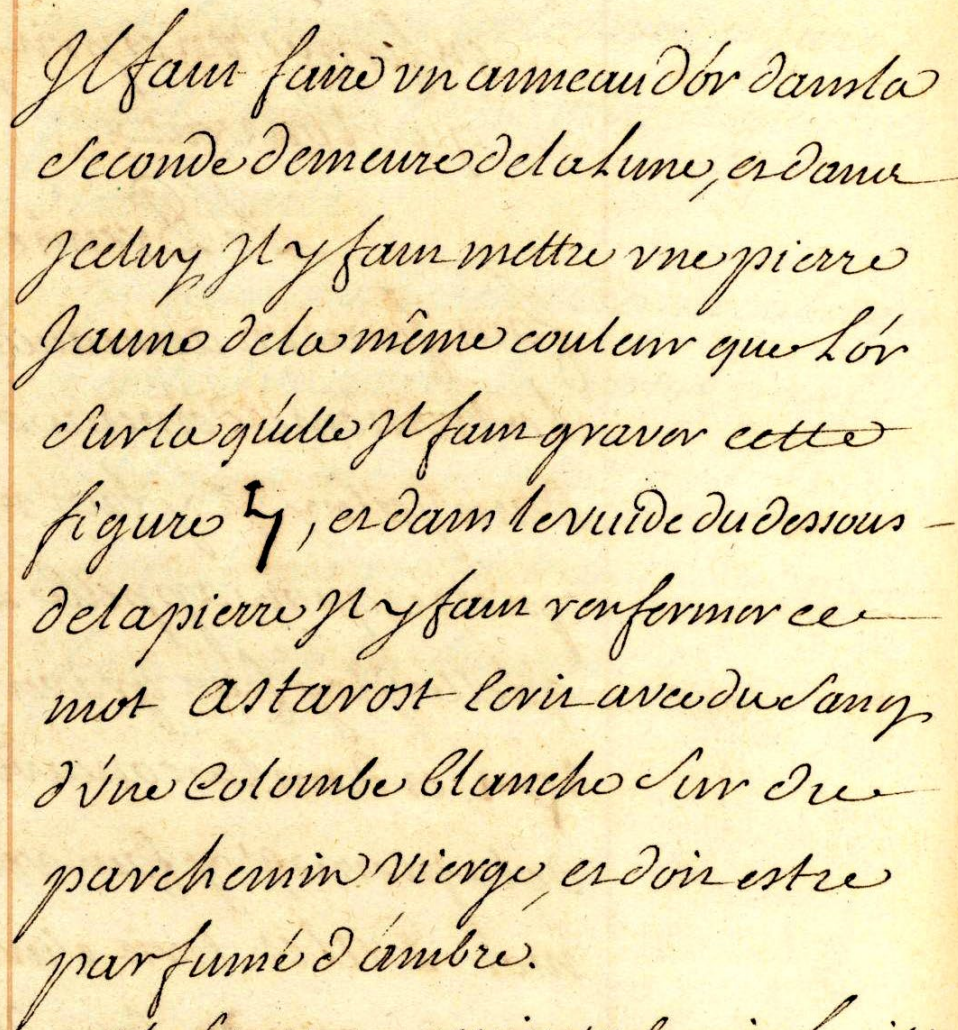 Jl faut faire vn anneau d'ór dans la
seconde demeure de la Lune, et dans
jceluy Jl y faut mettre vne pierre
Jaune de la même couleur que L'ór
sur la qúelle Jl faut graver cette
figure , et dans le vuide du dessous
de la pierre Jl y faut renfermer ce
mot Astarost Ecrit avec du sang
d'vne Colombe blanche sur du
parchemin vierge, et doit estre
parfumé d'ámbre.